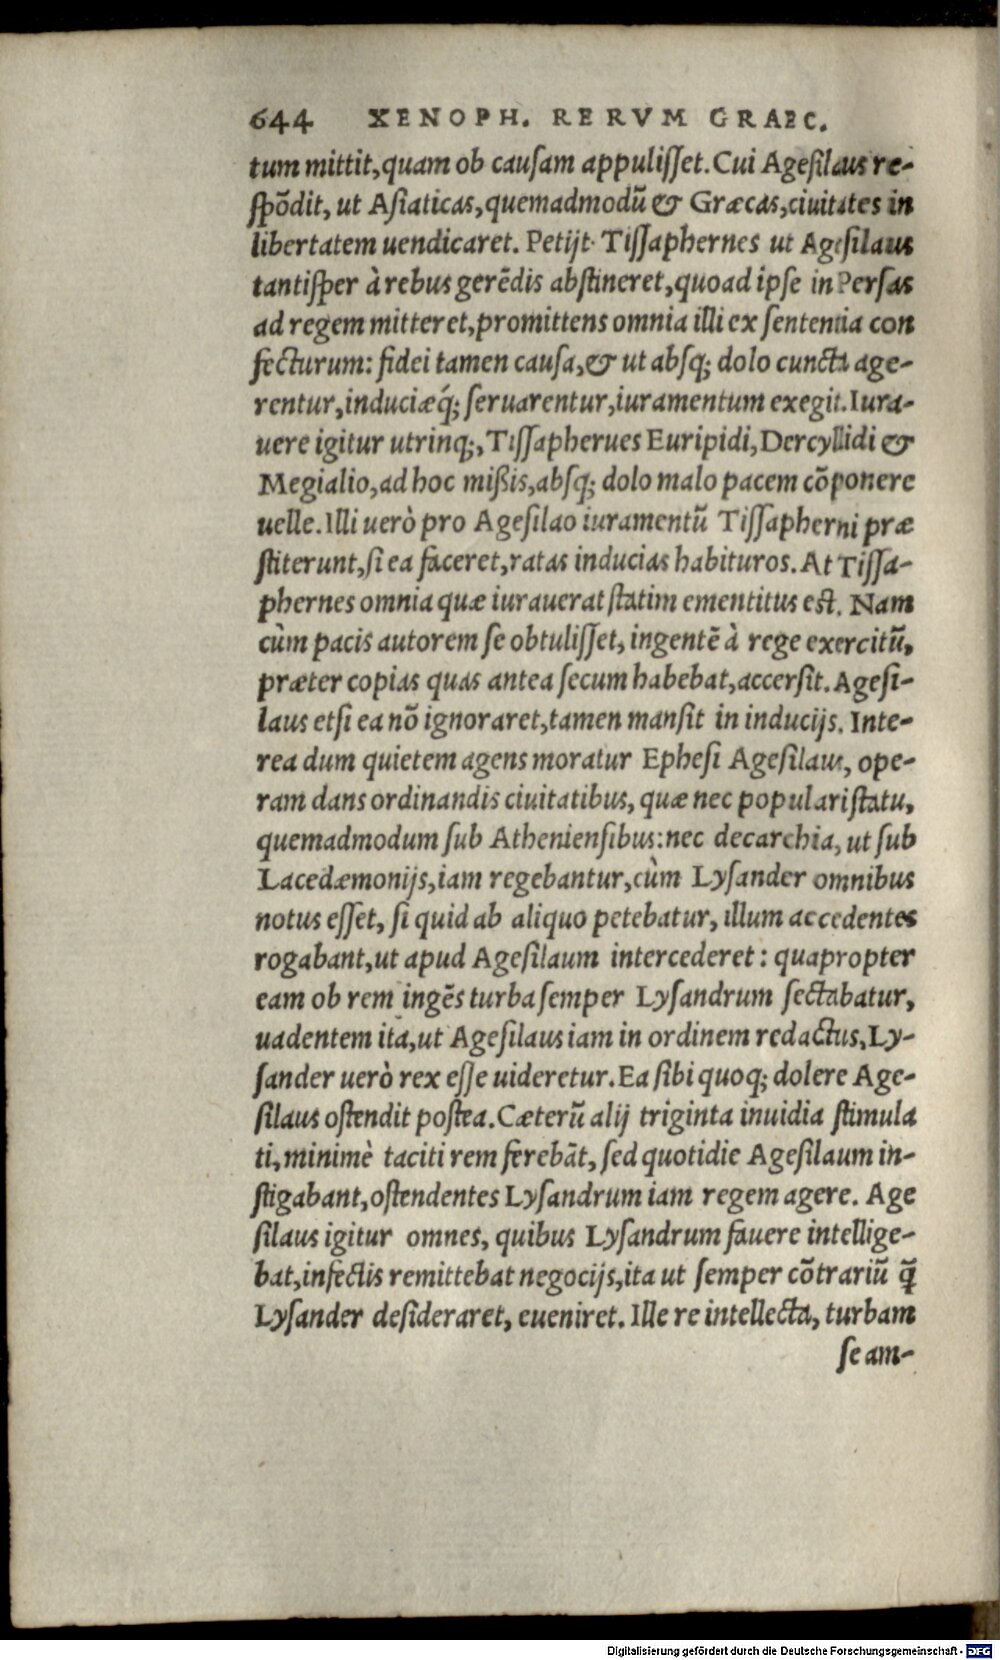 644 XENOPH. RERVM GRAEC.
tum mittit, quam ob causam appulisset. Cui Agesilaus re-
spõdit, ut Asiaticas, quemadmodũ & Græcas, ciuitates in
libertatem uendicaret. Petijt Tissaphernes ut Agesilaus
tantisper à rebus gerẽdis abstineret, quoad ipse in Persas
ad regem mitteret, promittens omnia illi ex sententia con
fecturum: fidei tamen causa, & ut absq; dolo cuncta age-
rentur, induciæq́; seruarentur, iuramentum exegit. Iura-
uere igitur utrinq;, Tissapherues Euripidi, Dercyllidi &
Megialio, ad hoc mißis, absq; dolo malo pacem cõponere
uelle. Illi uerò pro Agesilao iuramentũ Tissapherni præ
stiterunt, si ea faceret, ratas inducias habituros. At Tissa-
phernes omnia quæ iurauerat statim ementitus est. Nam
cùm pacis autorem se obtulisset, ingentẽ à rege exercitũ,
præter copias quas antea secum habebat, accersit. Agesi-
laus etsi ea nõ ignoraret, tamen mansit in inducijs. Inte-
rea dum quietem agens moratur Ephesi Agesilaus, ope-
ram dans ordinandis ciuitatibus, quæ nec populari statu,
quemadmodum sub Atheniensibus: nec decarchia, ut sub
Lacedæmonijs, iam regebantur, cùm Lysander omnibus
notus esset, si quid ab aliquo petebatur, illum accedentes
rogabant, ut apud Agesilaum intercederet: quapropter
eam ob rem ingẽs turba semper Lysandrum sectabatur,
uadentem ita, ut Agesilaus iam in ordinem redactus, Ly-
sander uerò rex esse uideretur. Ea sibi quoq; dolere Age-
silaus ostendit postea. Cæterũ alij triginta inuidia stimula
ti, minimè taciti rem ferebãt, sed quotidie Agesilaum in-
stigabant, ostendentes Lysandrum iam regem agere. Age
silaus igitur omnes, quibus Lysandrum fauere intellige-
bat, infectis remittebat negocijs, ita ut semper cõtrariũ q̃
Lysander desideraret, eueniret. Ille re intellecta, turbam
se am-
Digitalisierung gefördert durch die Deutsche Forschungsgemeinschaft - DFG